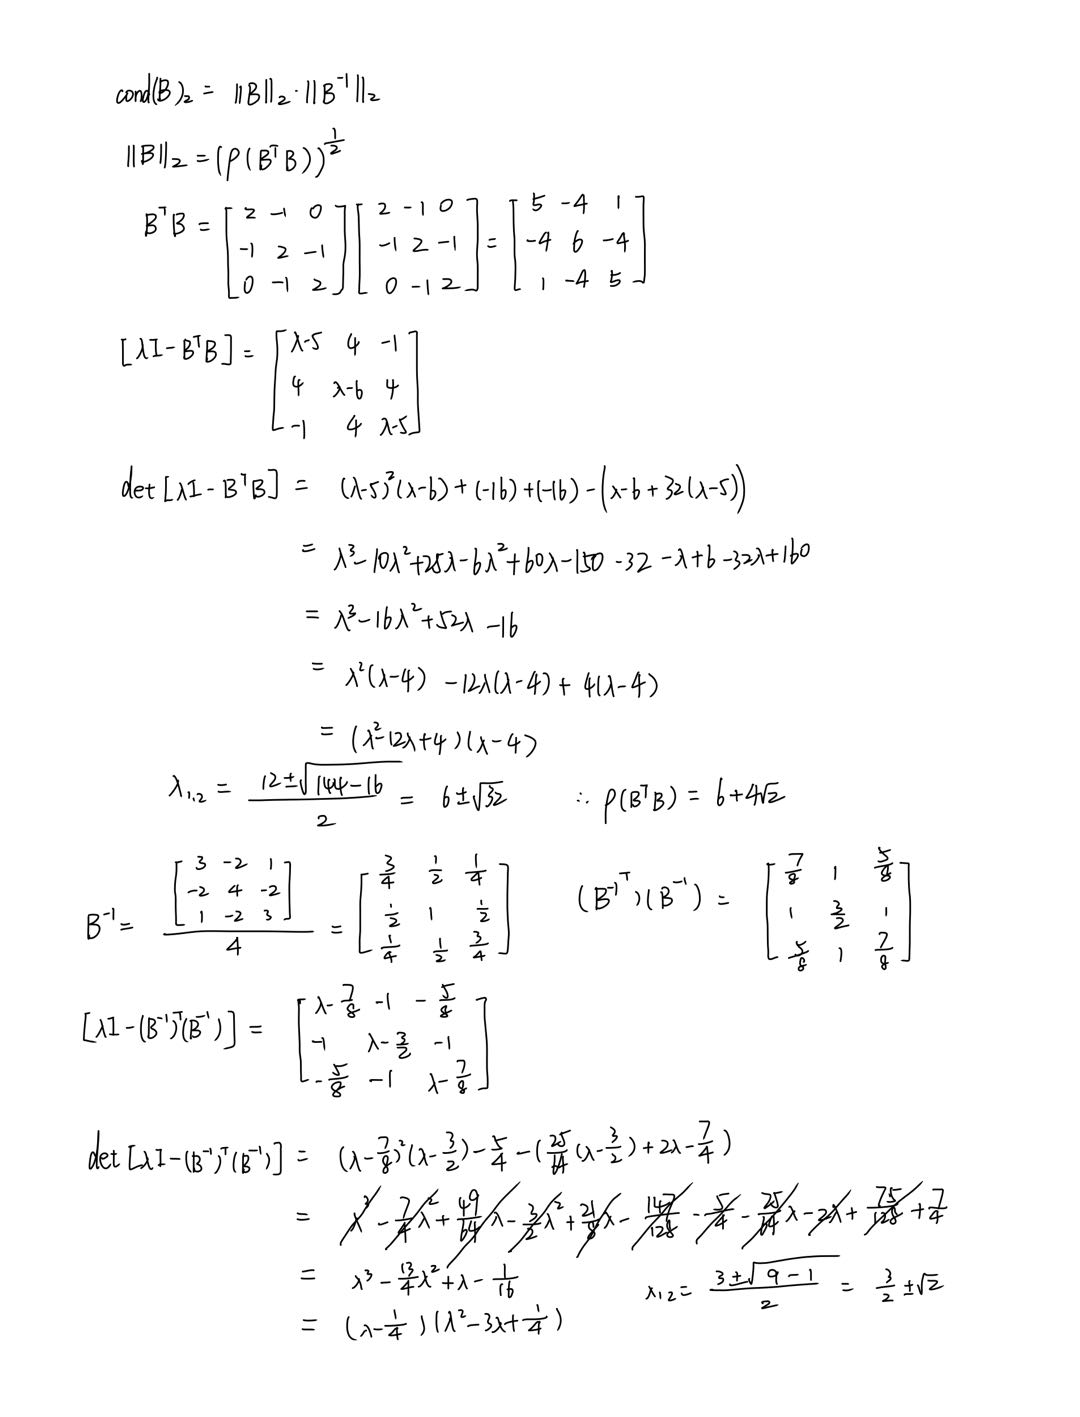 cond(B)₂ = ||B||₂·||B⁻¹||₂
||B||₂ = (ρ(BᵀB))^{1/2}
BᵀB = [2 -1 0; -1 2 -1; 0 -1 2] [2 -1 0; -1 2 -1; 0 -1 2] = [5 -4 1; -4 6 -4; 1 -4 5]
[λI - BᵀB] = [λ-5 4 -1; 4 λ-6 4; -1 4 λ-5]
det[λI - BᵀB] = (λ-5)²(λ-6) + (-16) + (-16) - (λ-6+32(λ-5))
= λ³-10λ²+25λ-6λ²+60λ-150-32-λ+6-32λ+160
= λ³-16λ²+52λ-16
= λ²(λ-4) -12λ(λ-4) + 4(λ-4)
= (λ²-12λ+4)(λ-4)
λ₁,₂ = (12±√(144-16))/2 = 6±√32 ∴ ρ(BᵀB) = 6+4√2
B⁻¹ = [3 -2 1; -2 4 -2; 1 -2 3]/4 = [3/4 1/2 1/4; 1/2 1 1/2; 1/4 1/2 3/4] (B⁻¹ᵀ)(B⁻¹) = [7/8 1 5/8; 1 3/2 1; 5/8 1 7/8]
[λI-(B⁻¹)ᵀ(B⁻¹)] = [λ-7/8 -1 -5/8; -1 λ-3/2 -1; -5/8 -1 λ-7/8]
det[λI-(B⁻¹)ᵀ(B⁻¹)] = (λ-7/8)²(λ-3/2) - 5/4 - (25/64(λ-3/2)+2λ-7/4)
= λ³ - 7/4λ² + 49/64λ - 3/2λ² + 21/8λ - 147/128 - 5/4 - 25/64λ - 2λ + 75/128 + 7/4
= λ³ - 13/4λ² + λ - 1/16 λ₁,₂ = (3±√(9-1))/2 = 3/2±√2
= (λ-1/4)(λ²-3λ+1/4)